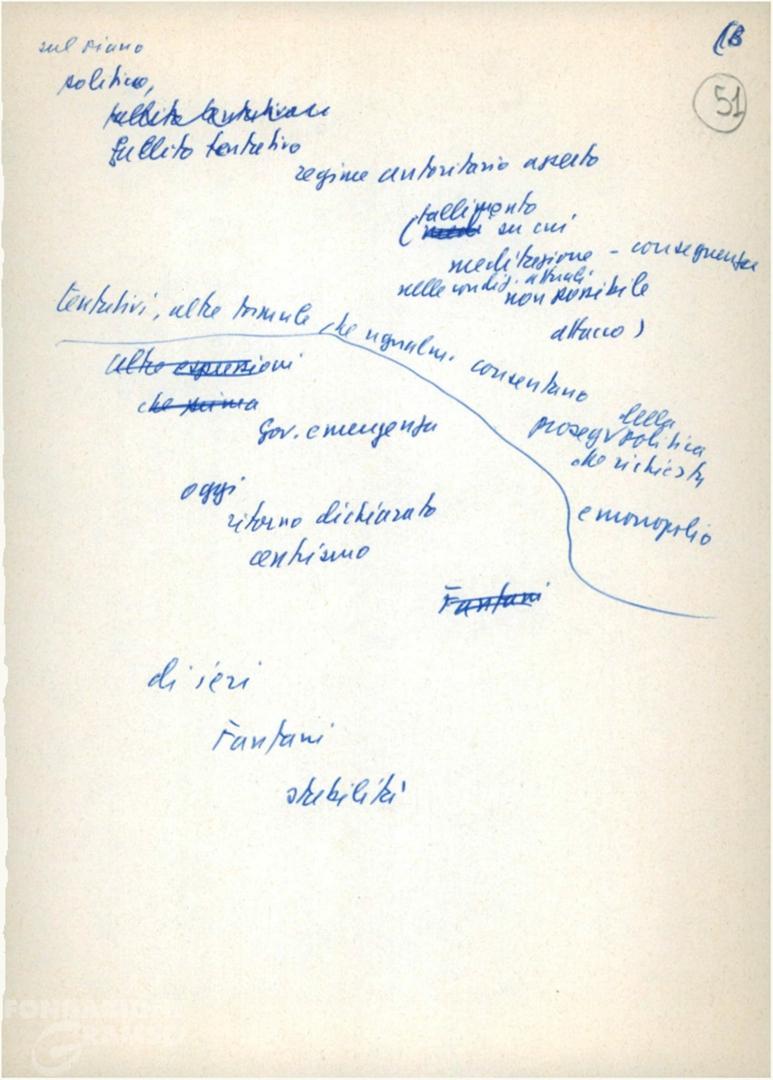 sul piano
(B
51
politico,
fallito tentativo
fallito tentativo
regime autoritario aperto
(fallimento
su cui
meditazione - conseguenza
nelle condiz. attuali
non possibile
attacco)
tentativi, altre formule che ugualm. consentano
altre espressioni
che prima
della
proseg. politica
Gov. emergenza
che richiesta
oggi
ritorno dichiarato
e monopolio
centrismo
Fanfani
di ieri
Fanfani
stabilità
FONDAZIONE
GRAMSCI